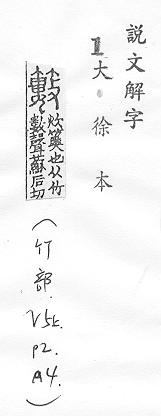 說文解字
1大.徐本
籔 炊䉛也从竹
數聲蘇后切
(竹部 V5上. P2. A4.)